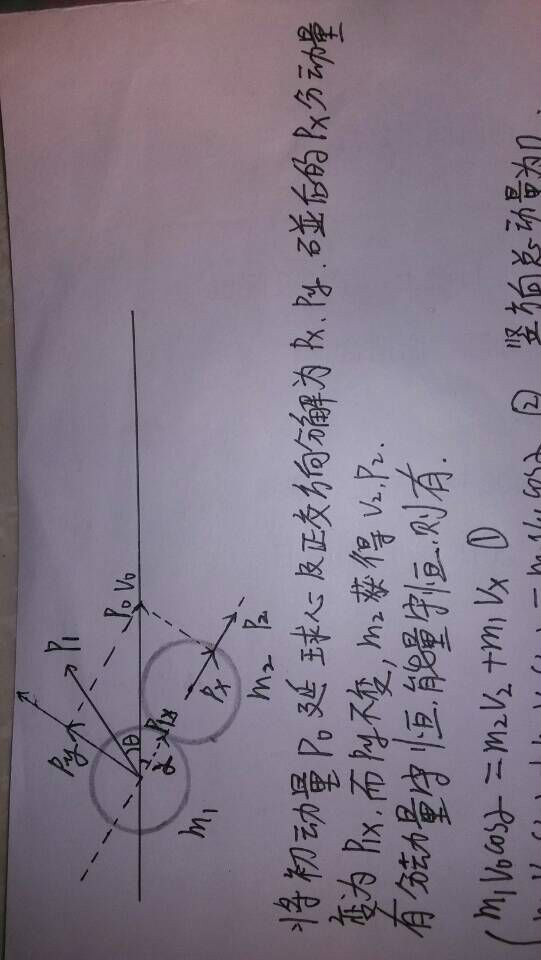 P₁
Py
P₀ V₀
θ
γ
P₁x
m₁
Px
P₂
m₂
将初动量P₀延球心及正交方向分解为Px、Py.碰后的Px分动量
变为P₁x.而Py不变,m₂获得V₂,P₂.
有分动量守恒.能量守恒.则有.
m₁V₀cosγ=m₂V₂+m₁Vx ①
② 竖方向总动量为0.